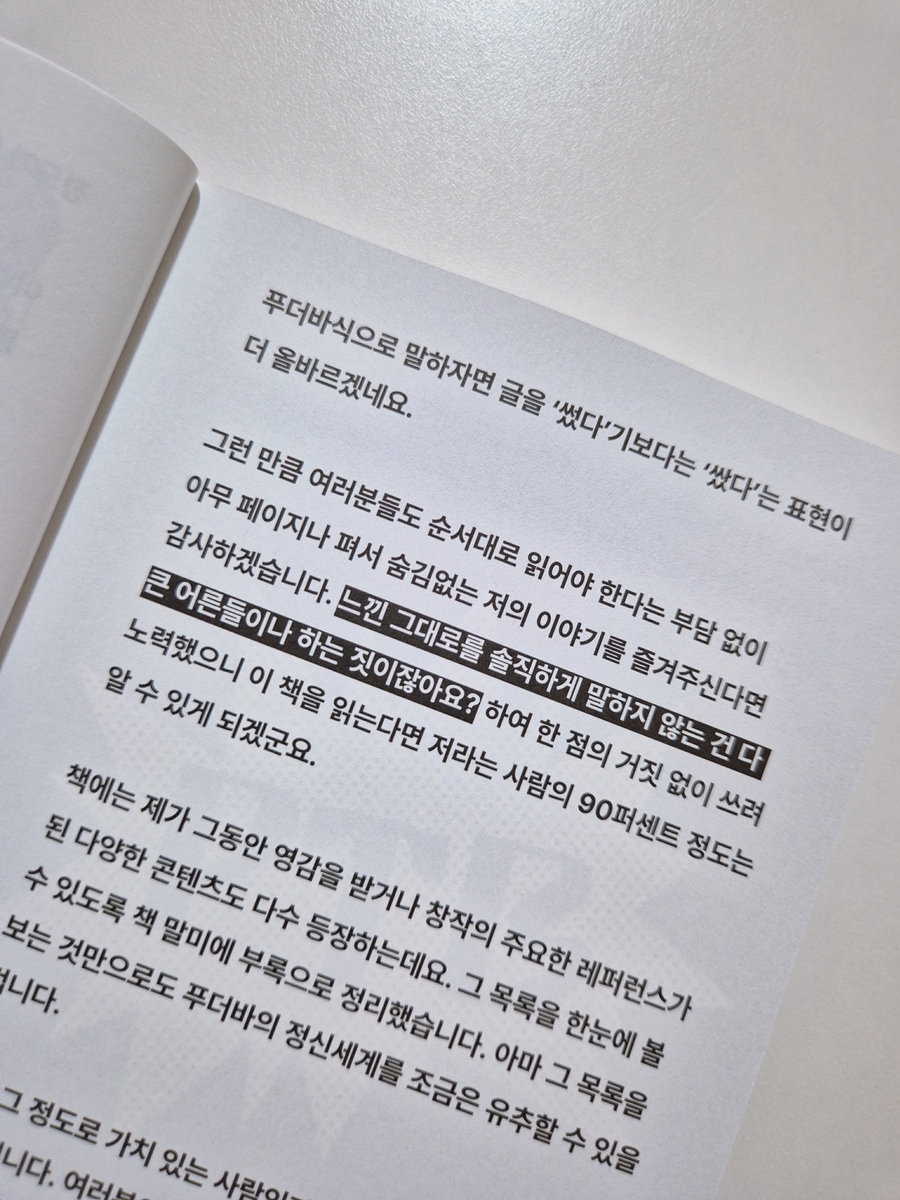 푸더바식으로 말하자면 글을 ‘썼다’기보다는 ‘쌌다’는 표현이
더 올바르겠네요.
그런 만큼 여러분들도 순서대로 읽어야 한다는 부담 없이
아무 페이지나 펴서 숨김없는 저의 이야기를 즐겨주신다면
감사하겠습니다. 느낀 그대로를 솔직하게 말하지 않는 건 다
큰 어른들이나 하는 짓이잖아요? 하여 한 점의 거짓 없이 쓰려
노력했으니 이 책을 읽는다면 저라는 사람의 90퍼센트 정도는
알 수 있게 되겠군요.
책에는 제가 그동안 영감을 받거나 창작의 주요한 레퍼런스가
된 다양한 콘텐츠도 다수 등장하는데요. 그 목록을 한눈에 볼
수 있도록 책 말미에 부록으로 정리했습니다. 아마 그 목록을
보는 것만으로도 푸더바의 정신세계를 조금은 유추할 수 있을
겁니다.
그 정도로 가치 있는